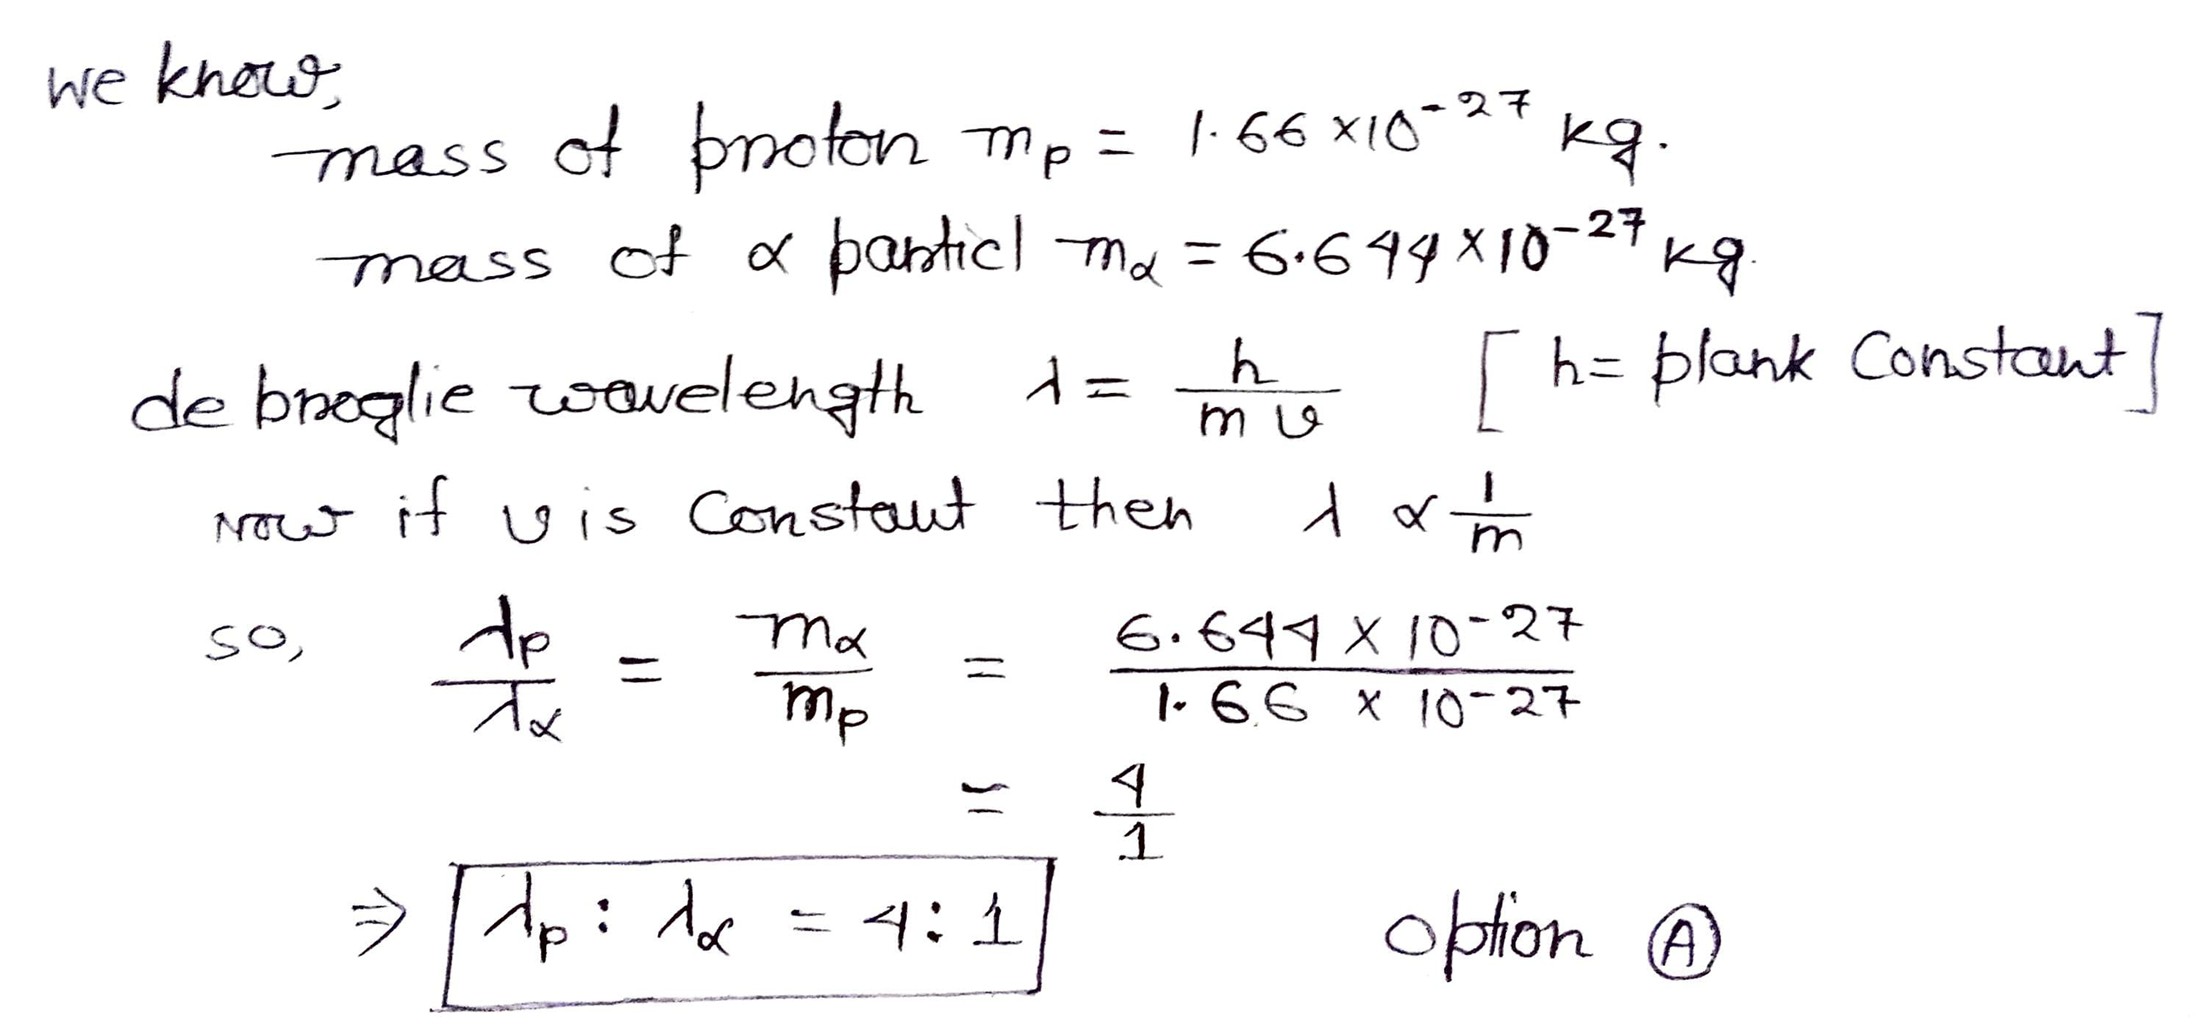 we know,
mass of proton mp = 1.66 ×10⁻²⁷ kg.
mass of α particl mα = 6.644 × 10⁻²⁷ kg.
de broglie wavelength λ = h/mv [h = plank Constant]
Now if v is Constant then λ ∝ 1/m
so, λp/λα = mα/mp = 6.644 × 10⁻²⁷/1.66 × 10⁻²⁷
= 4/1
⇒ λp : λα = 4 : 1 option Ⓐ